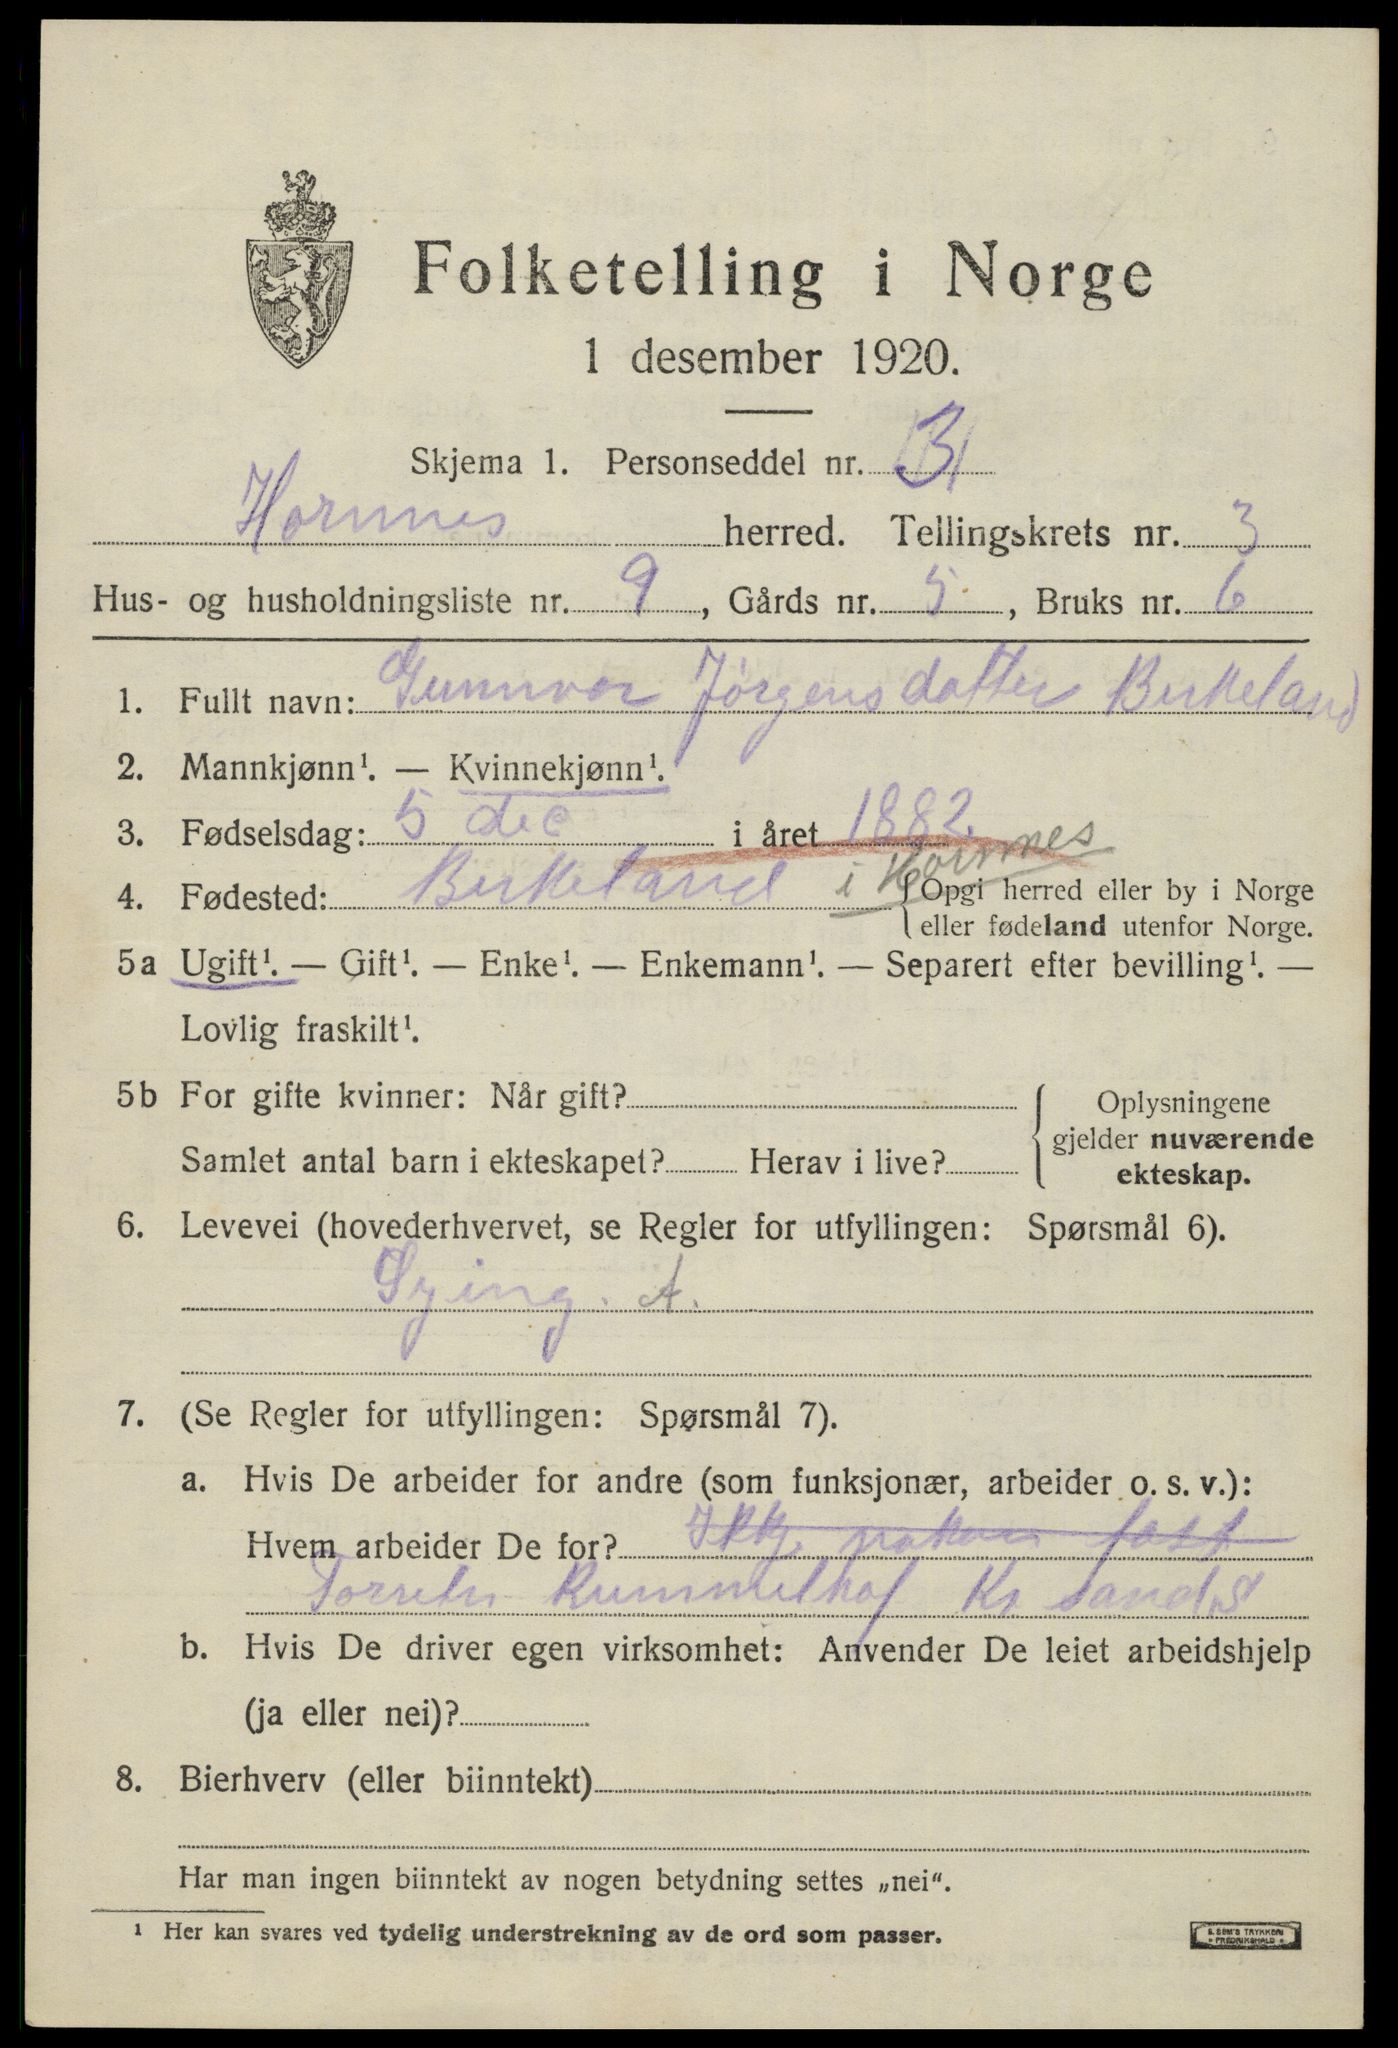 Folketelling i Norge
1 desember 1920.
Skjema 1. Personseddel nr. 3
Hornnes herred. Tellingskrets nr. 3
Hus- og husholdningsliste nr. 9, Gårds nr. 5, Bruks nr. 6
1. Fullt navn: Gunnvor Jörgensdatter Birkeland
2. Mannkjønn¹. — Kvinnekjønn¹.
3. Fødselsdag: 5 dec i året 1882
4. Fødested: Birkeland i Hornnes { Opgi herred eller by i Norge
eller fødeland utenfor Norge.
5a Ugift¹. — Gift¹. — Enke¹. — Enkemann¹. — Separert efter bevilling¹. —
Lovlig fraskilt¹.
5b For gifte kvinner: Når gift?
Samlet antal barn i ekteskapet? Herav i live?
Oplysningene
gjelder nuværende
ekteskap.
6. Levevei (hovederhvervet, se Regler for utfyllingen: Spørsmål 6).
Sying. A.
7. (Se Regler for utfyllingen: Spørsmål 7).
a. Hvis De arbeider for andre (som funksjonær, arbeider o. s. v.):
Hvem arbeider De for? fast
Rummelhof Kr sand S
b. Hvis De driver egen virksomhet: Anvender De leiet arbeidshjelp
(ja eller nei)?
8. Bierhverv (eller biinntekt)
Har man ingen biinntekt av nogen betydning settes „nei“.
¹ Her kan svares ved tydelig understrekning av de ord som passer.
S. SEM'S TRYKKERI
FREDRIKSHALD